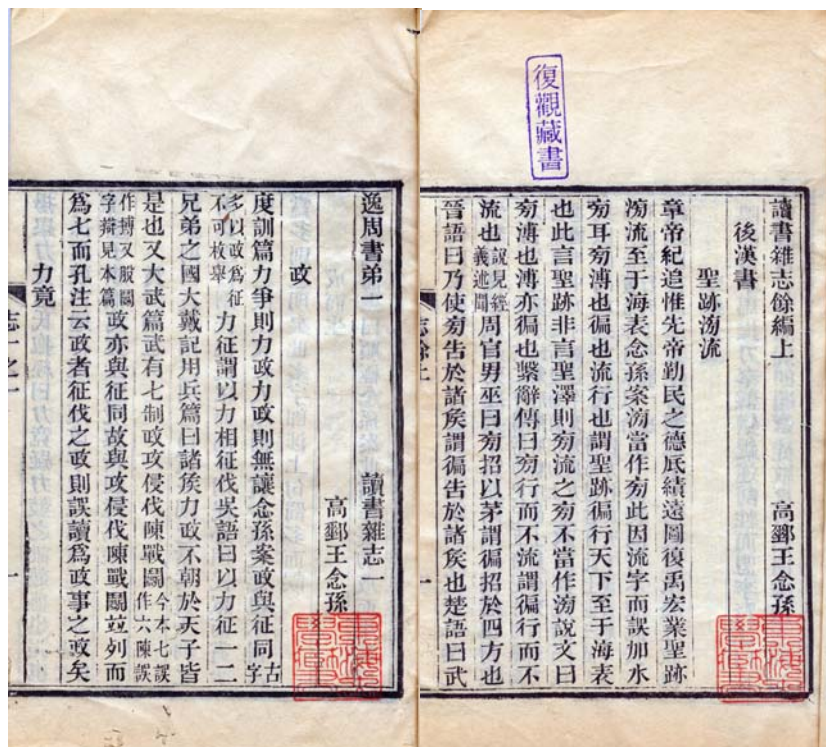 復觀藏書
讀書雜志餘編上　高郵王念孫
後漢書
聖跡滂流
章帝紀追惟先帝勤民之德厎績遠圖復禹宏業聖跡
滂流至于海表念孫案滂當作旁此因流字而誤加水
旁耳旁溥也徧也流行也謂聖跡徧行天下至于海表
也此言聖跡非言聖澤則旁流之旁不當作滂說文曰
旁溥也溥亦徧也繫辭傳曰旁行而不流謂徧行而不
流也說見經義述聞周官男巫曰旁招以茅謂徧招於四方也
晉語曰乃使旁告於諸矦謂徧告於諸矦也楚語曰武
志餘上
一
逸周書弟一　讀書雜志一
高郵王念孫
政
度訓篇力爭則力政力政則無讓念孫案政與征同古字
多以政爲征不可枚舉力征謂以力相征伐吳語曰以力征一二
兄弟之國大戴記用兵篇曰諸矦力政不朝於天子皆
是也又大武篇武有七制政攻侵伐陳戰鬭今本七誤作六陳誤
作搏又脫鬭字辯見本篇政亦與征同故與攻侵伐陳戰鬭竝列而
爲七而孔注云政者征伐之政則誤讀爲政事之政矣
力竟
志一之一
一